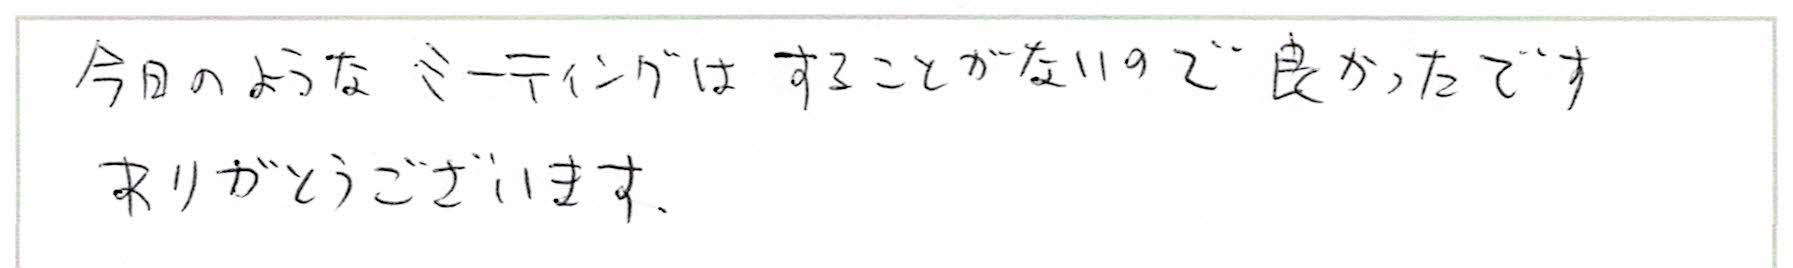 今日のようなミーティングはすることがないので良かったです
ありがとうございます.